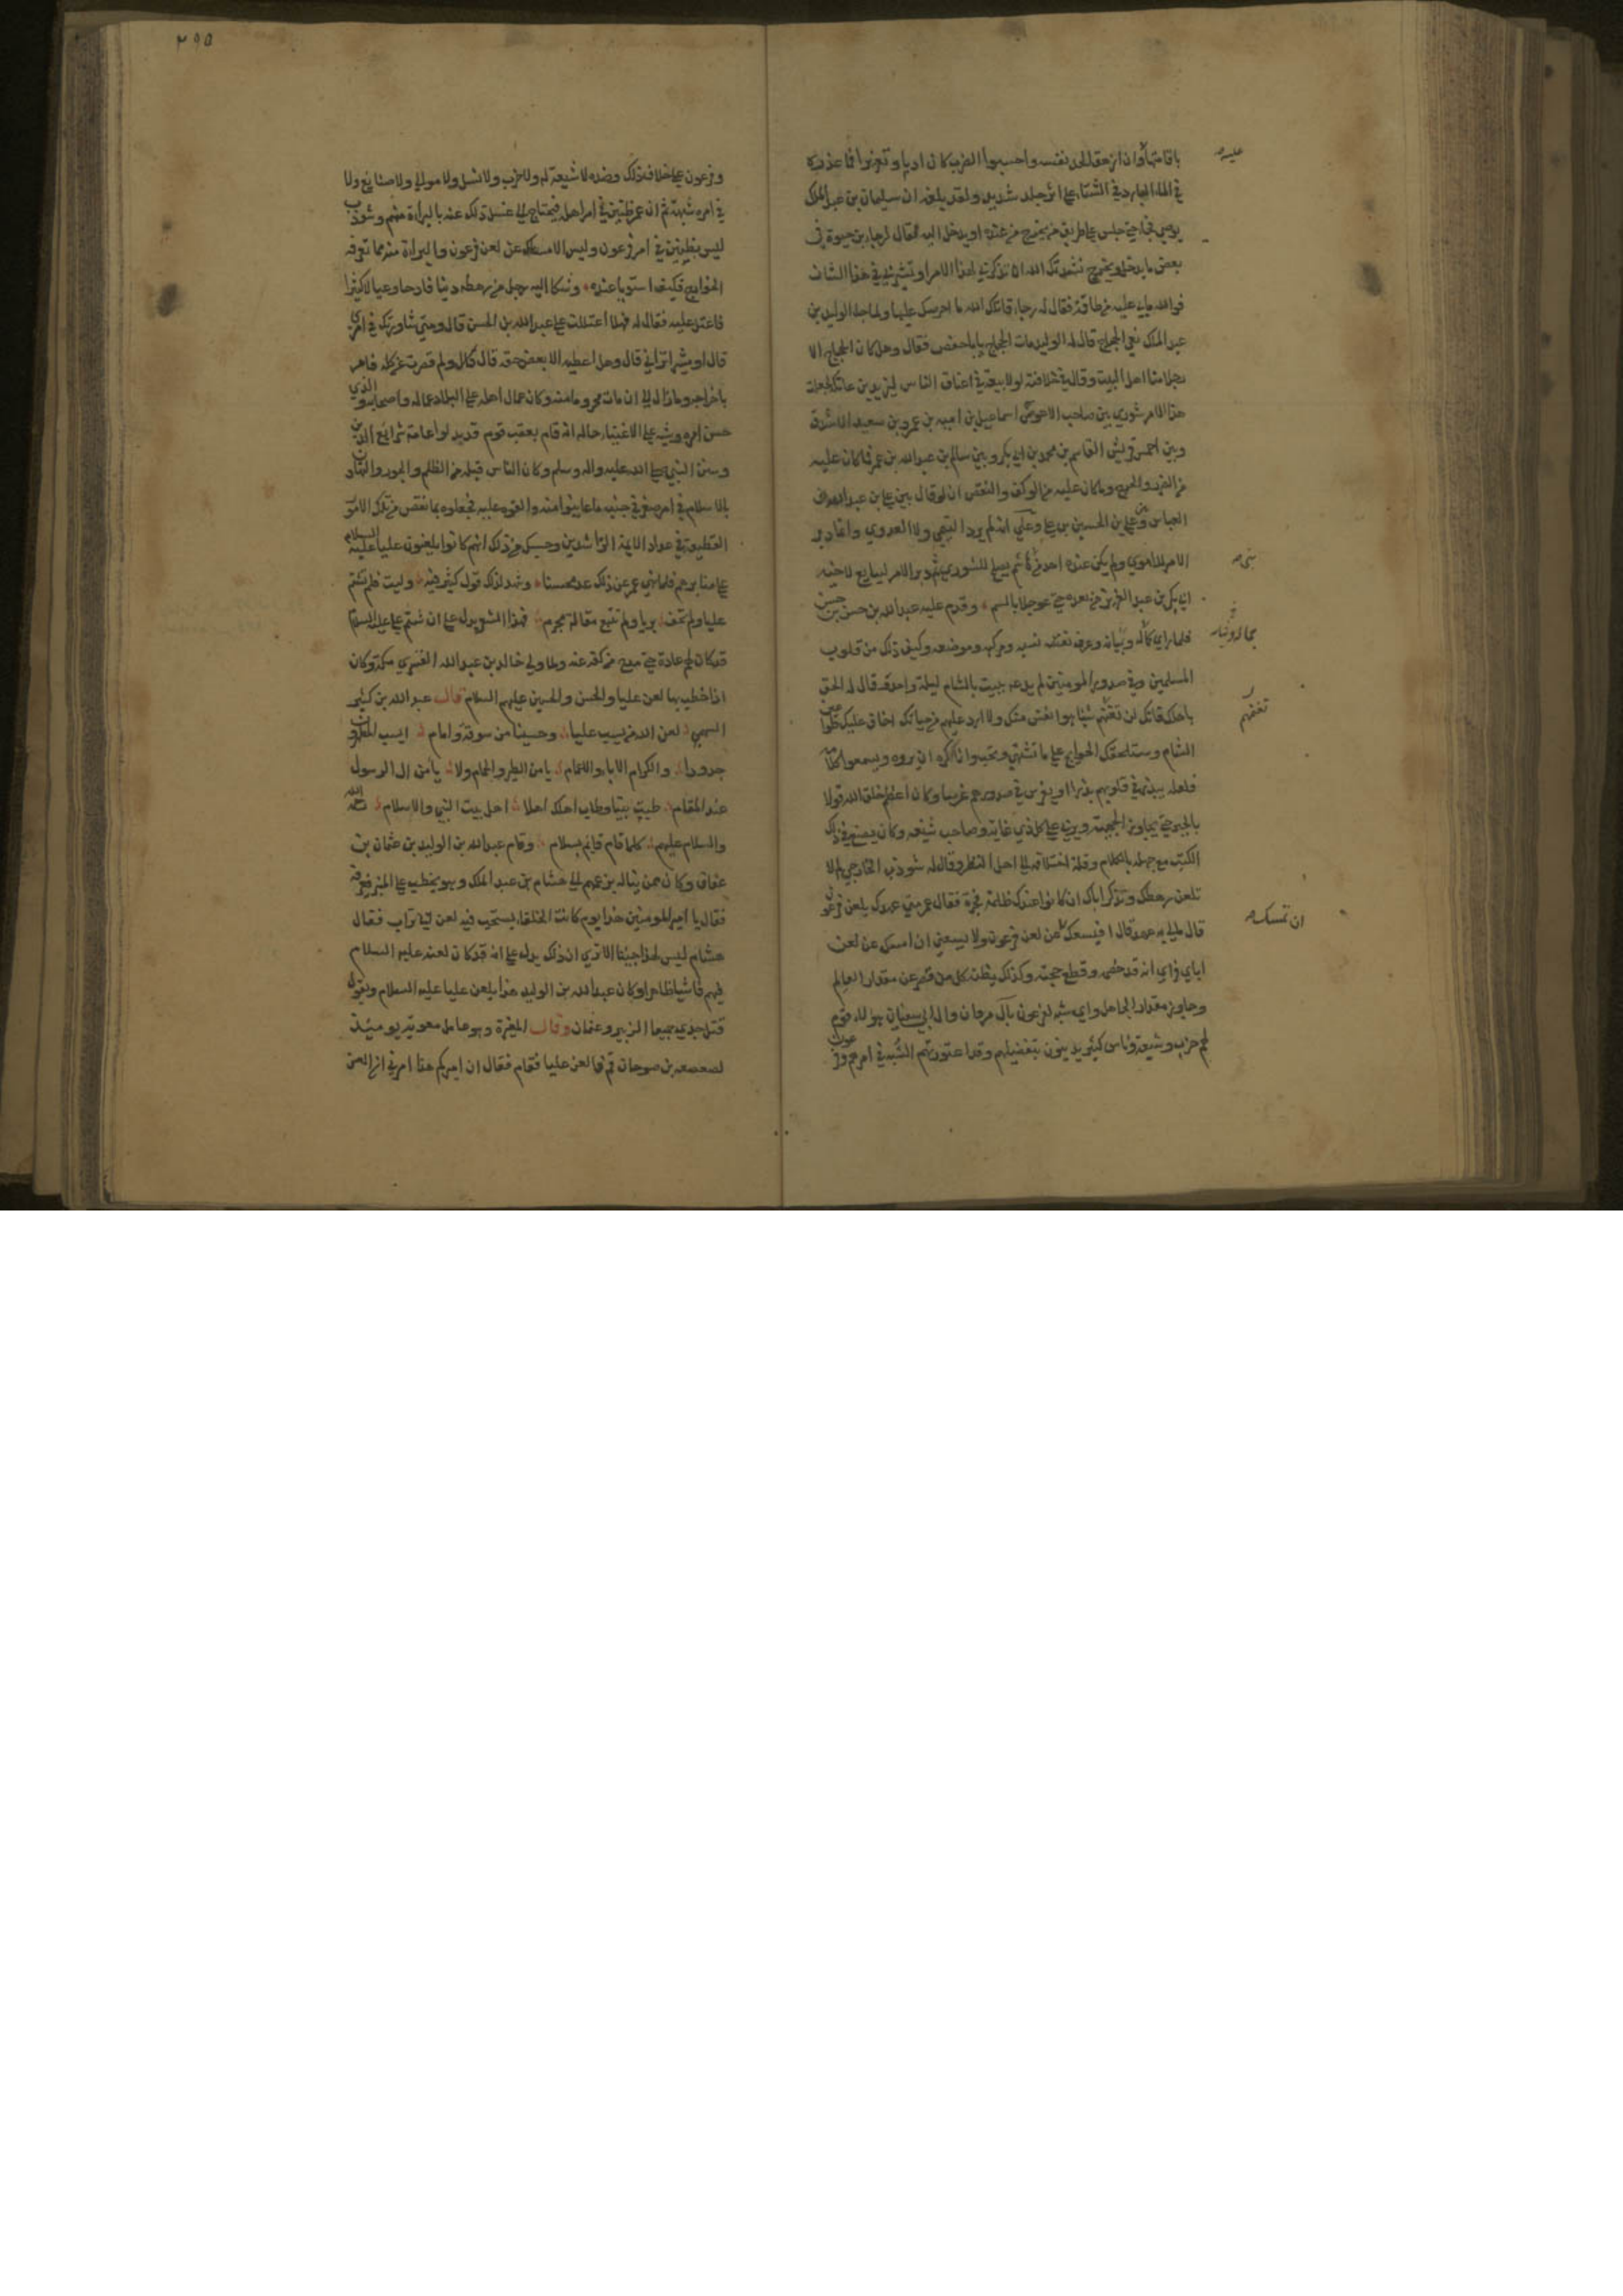 باقامتها وان ازهقا الحد نفسه واحسبوا الضرب كان ادبا وتعزيرا فما عذره
عليه
في الماء البارد في الشتاء على اثر جلد شديد ولقد بلغه ان سليمان بن عبد الملك
يوصي فجاء حتى جلس على طريق من يخرج من عنده او يدخل اليه فقال لرجاء بن حيوة في
بعض ما يدخل ويخرج نشدتك الله ان تذكرني لهذا الامر او تشير بي في هذا الشان
فوالله مالي عليه من طاقة فقال له رجاء قاتلك الله ما احرصك عليها ولما جاء الوليد بن
عبد الملك نعي الحجاج قال له الوليد مات الحجاج يا با حفص فقال وهل كان الحجاج الا
رجلا منا اهل البيت وقال في خلافته لولا بيعة في اعناق الناس ليزيد بن عاتكة لجعلت
هذا الامر شورى بين صاحب الاعوص اسماعيل بن امية بن عمرو بن سعيد الاشدق
وبين احمس قريش القاسم بن محمد بن ابي بكر وبين سالم بن عبد الله بن عمر فما كان عليه
من الضرر والحرج وما كان عليه من الوكف والنقص ان لو قال بين علي بن عبد الله بن
العباس وعلي بن الحسين بن علي وعلى انه لم يرد التيمي ولا العدوي وانما دبر
الامر للاموي ولم يكن عنده احد من هاشم يصلح للشورى ثم دبر الامر ليبايع لاخيه
بني
ابي بكر بن عبد العزيز من بعده حتى عوجل بالسم وقدم عليه عبد الله بن حسن بن حسن
فلما راى كماله وبيانه وعرف نسبه ومركبه وموضعه وكيف ذلك من قلوب
المسلمين وفي صدور المومنين لم يدعه يبيت بالشام ليلة واحدة قال له الحق
باهلك فانك لن تغنمهم شيئا هو انفس منك ولا ارد عليهم من حياتك اخاف عليك طواعين
تغنمهم
الشام وستلحقك الحوايج على ما تشتهي وتحب وانما كره ان يروه ويسمعوا كلامه
فلعله يبذر في قلوبهم بذرا او يغرس في صدورهم غرسا وكان اعظم خلق الله قولا
بالجبر حتى يتجاوز الجهمية ويربي على كل ذي غاية وصاحب شنعه وكان يصنع في ذلك
الكتب مع جهله بالكلام وقلة اختلافه الى اهل النظر وقال له شوذب الخارجي لم لا
تلعن رهطك وتذكر اباك ان كانوا عندك ظلمة فجرة فقال عمر متى عهدك بلعن فرعون
قال مالي به عهد قال افيسعك ان تمسك عن لعن فرعون ولا يسعني ان امسك عن لعن
ان تمسك
اباي فراى انه قد خصم وقطع حجته وكذلك يظنه كل من قصر عن مقدار العالم
وجاوز مقدار الجاهل واي شبه لفرعون بآل مروان وال ابي سفيان هولاء قوم
لهم حزب وشيعة وناس كثير يدينون بتفضيلهم وقد اعتورتهم الشبه في امرهم وفرعون
٢٩٥
وفرعون على خلاف ذلك وضده لا شيعة له ولا حزب ولا نسل ولا موالي ولا صنايع ولا
في امره شبهة ثم ان عمر ظنين في امر اهله فيحتاج الى غسل ذلك عنه بالبراءة منهم وشوذب
ليس بظنين في امر فرعون وليس الامساك عن لعن فرعون والبراءة منه مما تعرفه
الخوارج فكيف استويا عنده وشكا اليه رجل من رهطه دينا فادحا وعيالا كثيرا
فاعتل عليه فقال له فهلا اعتللت على عبد الله بن الحسن قال ومتى شاورتك في امري
قال او مشيرا تراني قال وهل اعطيته الا بعض حقه قال كلا ولم قصرت عن كله فامر
باخراجه وما زال الى ان مات محروما منه وكان عمال اهله على البلاد عماله واصحابه والذي
حسن امره وشبه على الاغبياء حاله انه قام بعقب قوم قد بدلوا عامة شرايع الدين
وسنن النبي صلى الله عليه واله وسلم وكان الناس قبله من الظلم والجور والتهاون
بالاسلام في امر صغر في جنبه ما عاينوا منه والفوه عليه فجعلوه بما نقص من تلك الامور
الفظيعة في عداد الايمة الراشدين وحسبك من ذلك انهم كانوا يلعنون عليا عليه السلام
على منابرهم فلما نهى عمر عن ذلك عد محسنا وشهد لذلك قول كثير فيه وليت فلم تشتم
عليا ولم تخف بريا ولم تتبع مقالة مجرم فهذا الشعر يدل على ان شتم علي عليه السلام
قد كان لهم عادة حتى مدح من كف عنه ولما ولي خالد بن عبد الله القسري مكة وكان
اذا خطب بها لعن عليا والحسن والحسين عليهم السلام قال عبد الله بن كثير
السهمي لعن الله من يسب عليا وحسينا من سوقة وامام ايسب المطهرون
جدودا والكرام الاباء والاعمام يا من الطير والحمام ولا يا من ال الرسول
عند المقام طبت بيتا وطاب اهلك اهلا اهل بيت النبي والاسلام رحمة الله
والسلام عليهم كلما قام قايم بسلام وقام عبد الله بن الوليد بن عثمان بن
عفان وكان ممن يناله بزعمهم الى هشام بن عبد الملك وهو يخطب على المنبر بعرفة
فقال يا امير المومنين هذا يوم كانت الخلفاء يستحب فيه لعن ابي تراب فقال
هشام ليس لهذا جئنا الا ترى ان ذلك يدل على انه قد كان لعنه عليه السلام
فيهم فاشيا ظاهرا وكان عبد الله بن الوليد هذا يلعن عليا عليه السلام ويقول
قتل جدي جميعا الزبير وعثمان وقال المغيرة وهو عامل معوية يومئذ
لصعصعه بن صوحان قم فالعن عليا فقام فقال ان اميركم هذا امرني ان العن